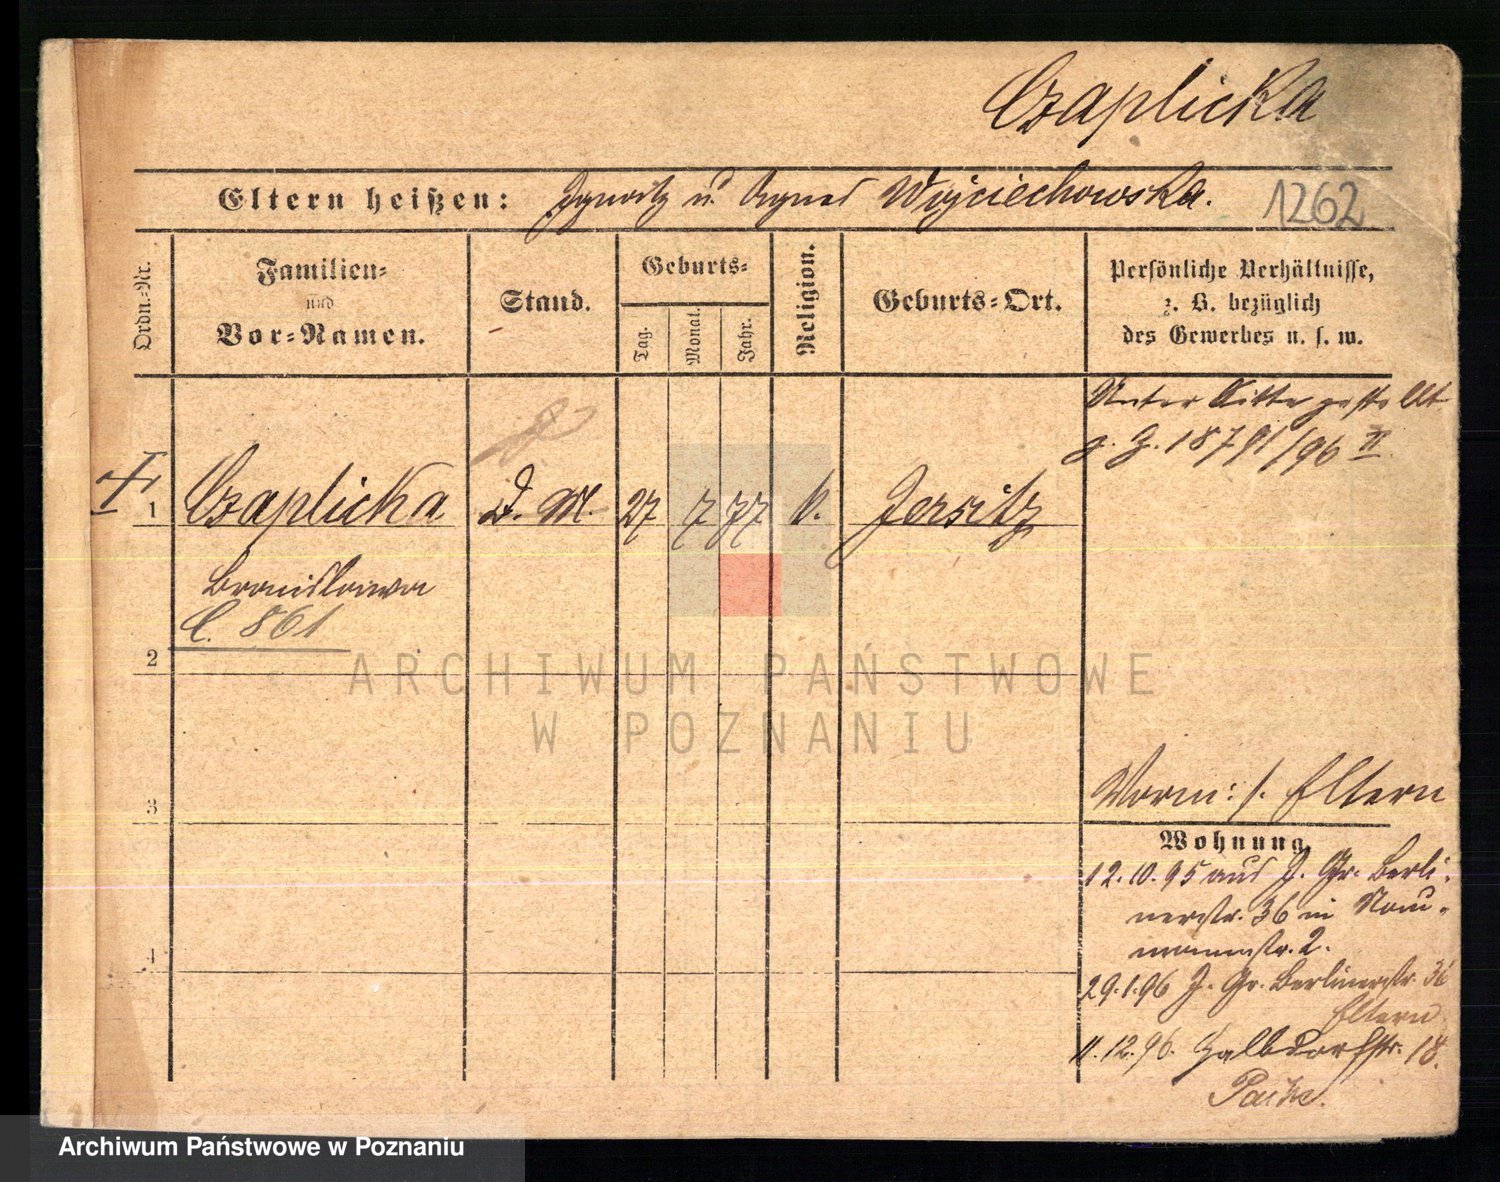 Czaplicka
Eltern heißen: Ignatz u. Agnes Wojciechowska.
1262
Ordn.-Nr.
Familien-
und
Vor-Namen.
Stand.
Geburts-
Tag.
Monat.
Jahr.
Religion.
Geburts-Ort.
Persönliche Verhältnisse,
z. B. bezüglich
des Gewerbes u. s. w.
Unter Sitte gestellt
1
Czaplicka
D. M.
27
7
77
k.
Jersitz
Bronislawa
C. 861
2
3
4
Vorm: s. Eltern
Wohnung.
12.10.95 aus J. Gr. Berli-
nerstr. 36 in Nau-
mannstr. 2.
29.1.96 J. Gr. Berlinerstr. 36
Eltern
11.12.96. Halbdorfstr. 18.
ARCHIWUM PAŃSTWOWE
W POZNANIU
Archiwum Państwowe w Poznaniu